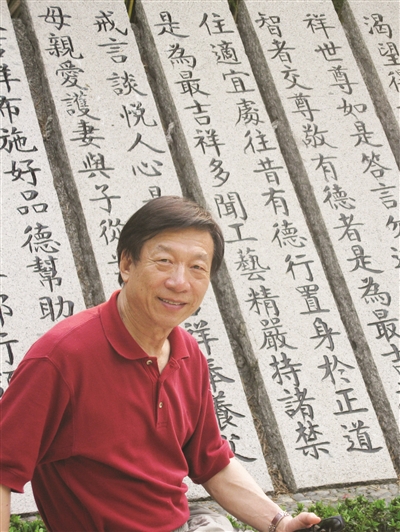 渴望得
祥世尊如是答言勿近
智者交尊敬有德者是為最吉
住適宜處往昔有德行置身於正道
是為最吉祥多聞工藝精嚴持諸禁
戒言談悅人心是祥奉養父
母親愛護妻與子從
祥布施好品德幫助
邪行